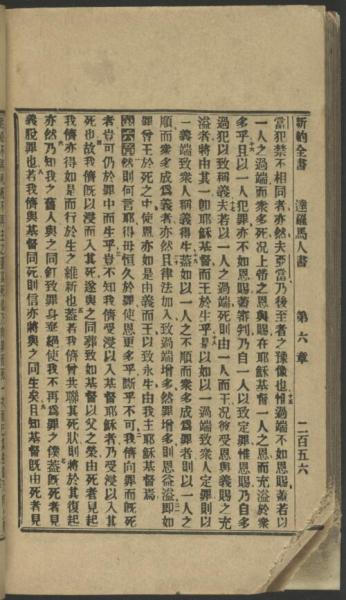 新約全書　達羅馬人書　第六章　二百五六
當犯禁不相同者亦然夫亞當乃後至者之豫像也惟過端不如恩賜蓋若以
一人之過端而衆多死况上帝之恩與賜在耶穌基督一人之恩而充溢於衆
多乎且以一人犯罪亦不如恩賜蓋審判乃自一人以致定罪惟恩賜乃自多
過犯以致稱義夫若以一人之過端死則由一人而王况彼受恩與義賜之充
溢者將由其一卽耶穌基督而王於生乎是以如以一過端致衆人定罪則以
一義端致衆人稱義得生蓋如以一人之不順而衆多成爲罪者則以一人之
順而衆多成爲義者亦然且律法加入致過端增多然罪增多則恩益溢卽如
罪曾王於死之中使恩亦如是由義而王以致永生由我主耶穌基督焉
然則何言耶得毋恒久於罪使恩更多乎斷乎不可我儕向罪而旣死
者豈可仍於罪中而生乎豈不知我儕受浸以入基督耶穌者乃受浸以入其
死也故我儕旣以浸而入其死遂與之同葬致如基督以父之榮由死者見起
我儕亦得如是而行於生之維新也蓋若我儕曾共聯其死狀則將於其復起
亦然乃知我之舊人與之同釘致罪身棄絕使我不再爲罪之僕蓋旣死者見
義脫罪也若我儕與基督同死則信亦將與之同生矣且知基督旣由死者見